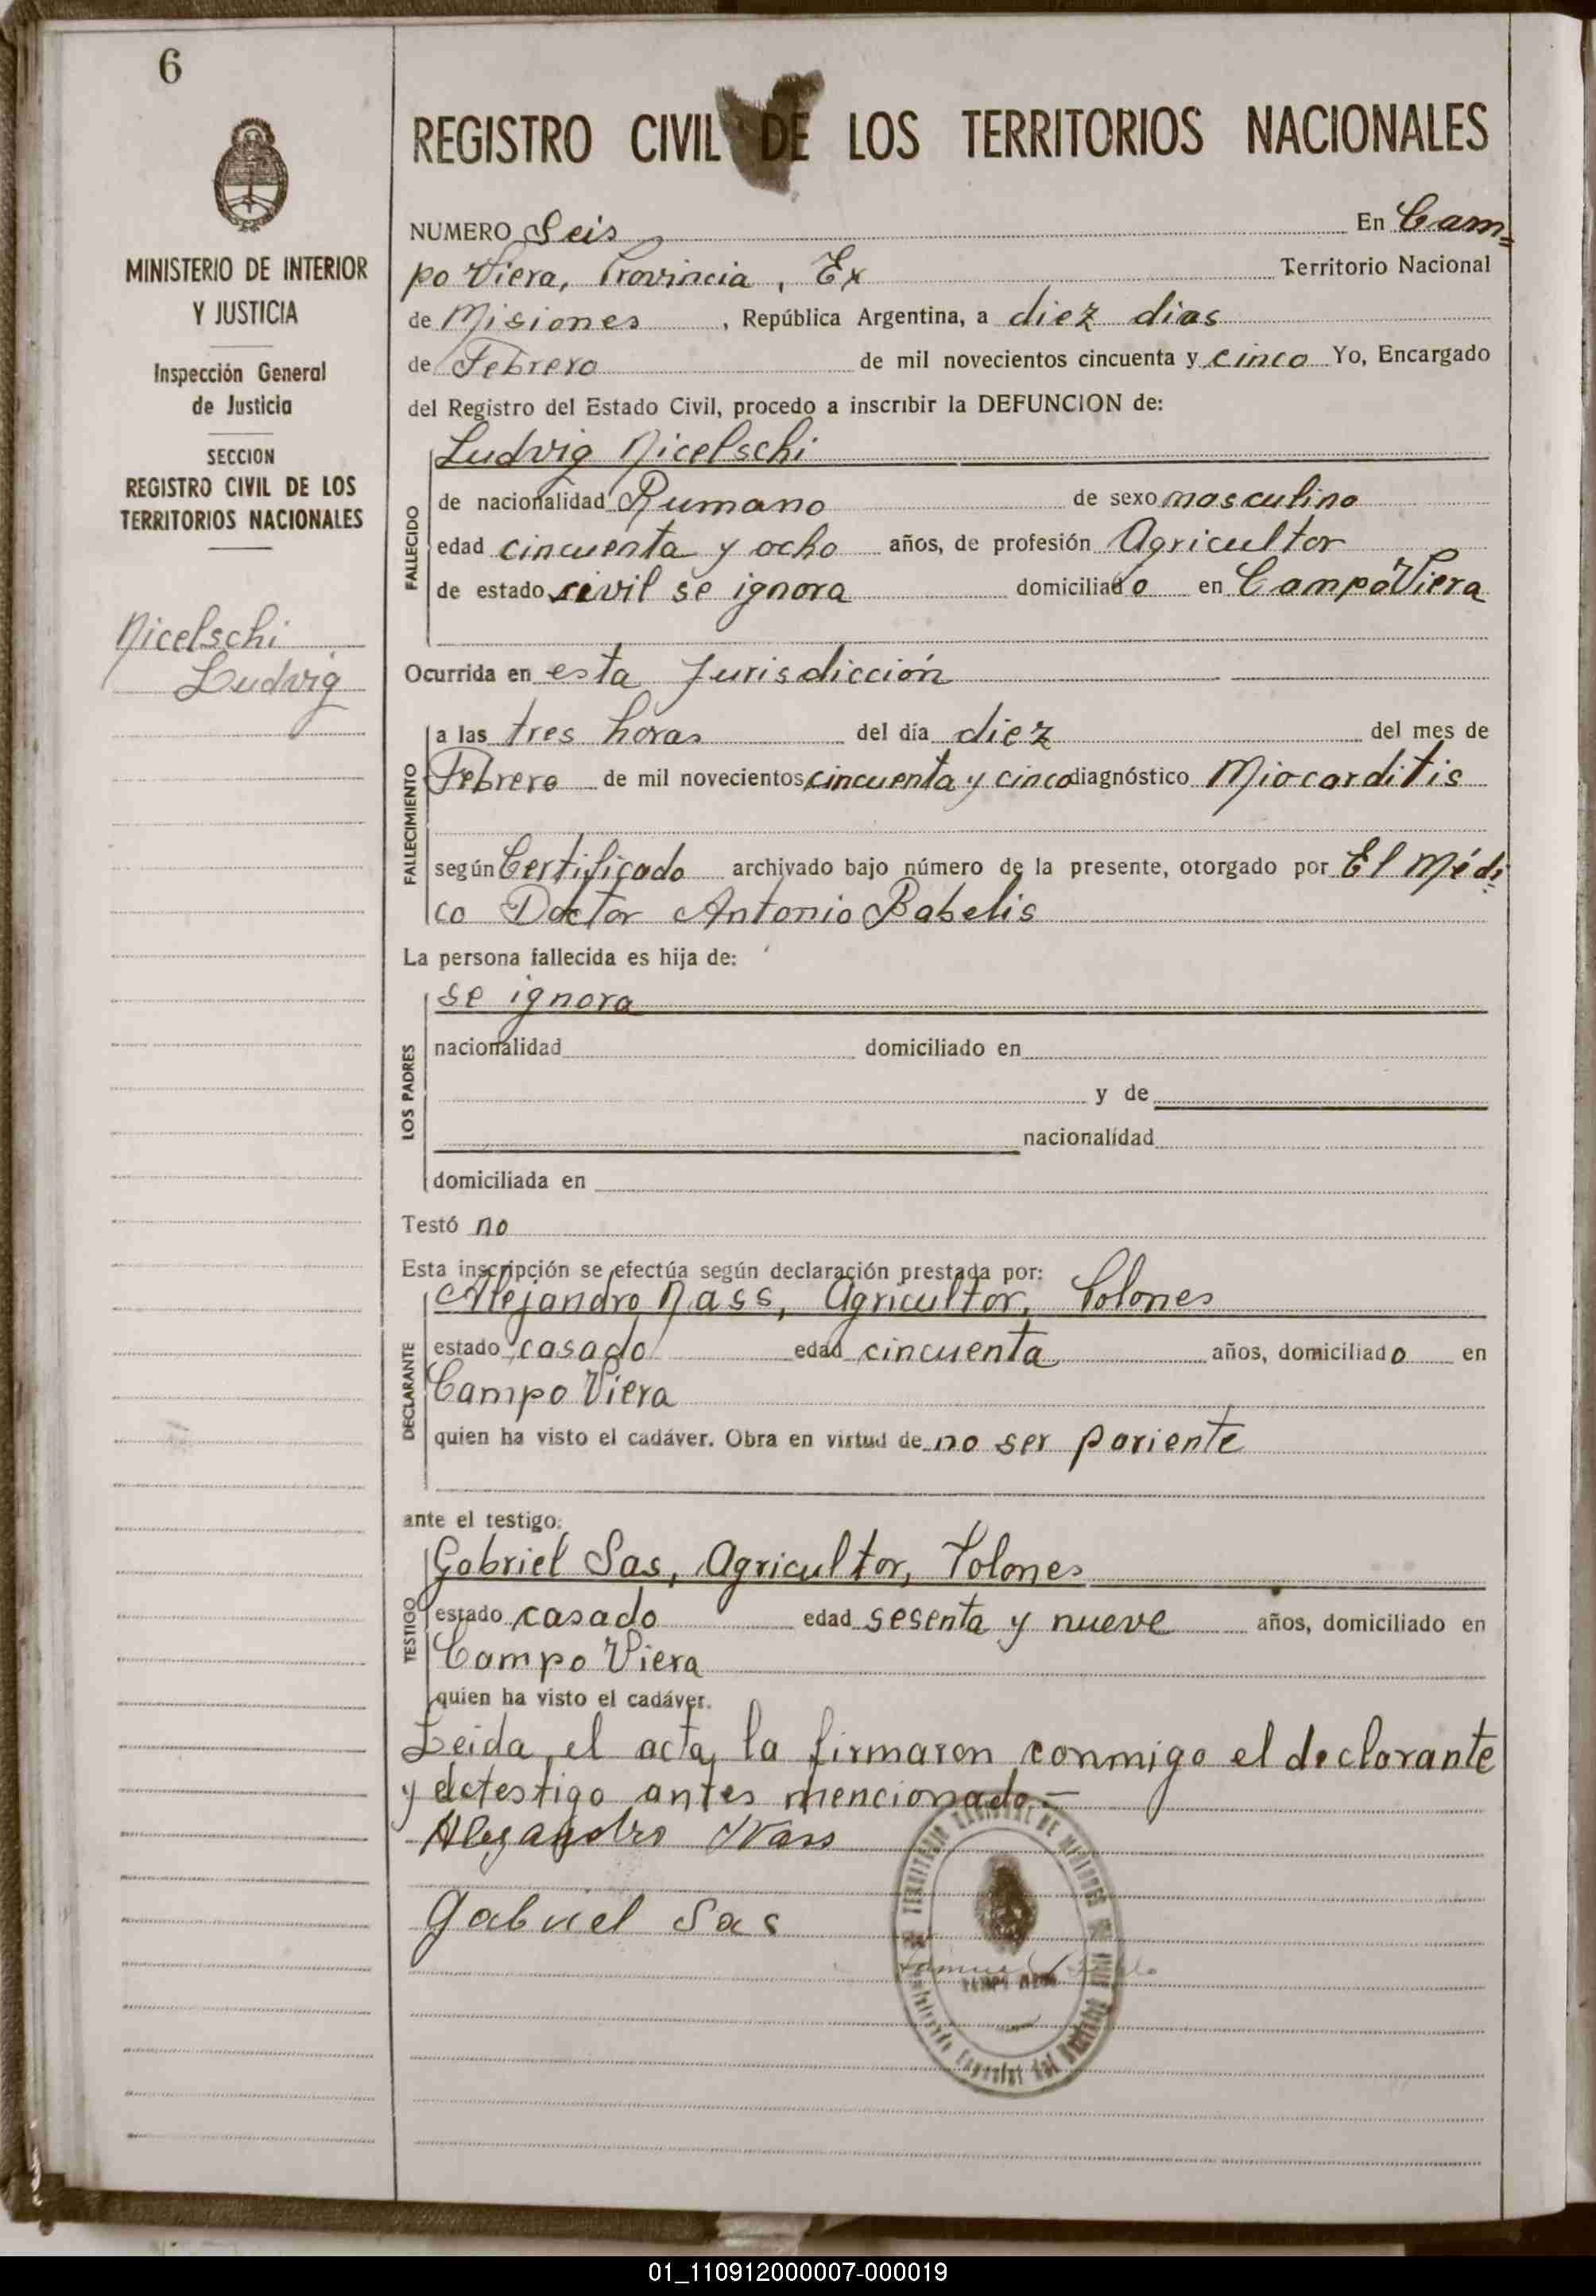 6
MINISTERIO DE INTERIOR
Y JUSTICIA
Inspección General
de Justicia
SECCION
REGISTRO CIVIL DE LOS
TERRITORIOS NACIONALES
Nicelschi
Ludvig
REGISTRO CIVIL DE LOS TERRITORIOS NACIONALES
NUMERO Seis En Cam=
po Viera, Provincia, Ex Territorio Nacional
de Misiones, República Argentina, a diez dias
de Febrero de mil novecientos cincuenta y cinco Yo, Encargado
del Registro del Estado Civil, procedo a inscribir la DEFUNCION de:
Ludvig Nicelschi
FALLECIDO
de nacionalidad Rumano de sexo masculino
edad cincuenta y ocho años, de profesión Agricultor
de estado sivil se ignora domiciliado en Campo Viera
Ocurrida en esta Jurisdicción
FALLECIMIENTO
a las tres horas del día diez del mes de
Febrero de mil novecientos cincuenta y cinco diagnóstico Miocarditis
según Certificado archivado bajo número de la presente, otorgado por El Médi=
co Doctor Antonio Babelis
La persona fallecida es hija de:
LOS PADRES
se ignora
nacionalidad domiciliado en
y de
nacionalidad
domiciliada en
Testó no
Esta inscripción se efectúa según declaración prestada por:
DECLARANTE
Alejandro Nass, Agricultor, Polones
estado casado edad cincuenta años, domiciliado en
Campo Viera
quien ha visto el cadáver. Obra en virtud de no ser pariente
ante el testigo:
TESTIGO
Gabriel Sas, Agricultor, Polones
estado casado edad sesenta y nueve años, domiciliado en
Campo Viera
quien ha visto el cadáver.
Leida el acta, la firmaron conmigo el declarante
y el testigo antes mencionado.-
Alejandro Nass
Gabriel Sas
TERRITORIO NACIONAL DE MISIONES
01_110912000007-000019